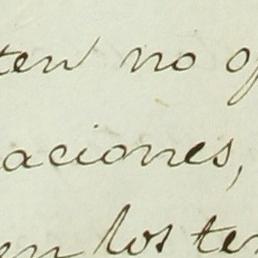 ten no op
aciones,
en los ter